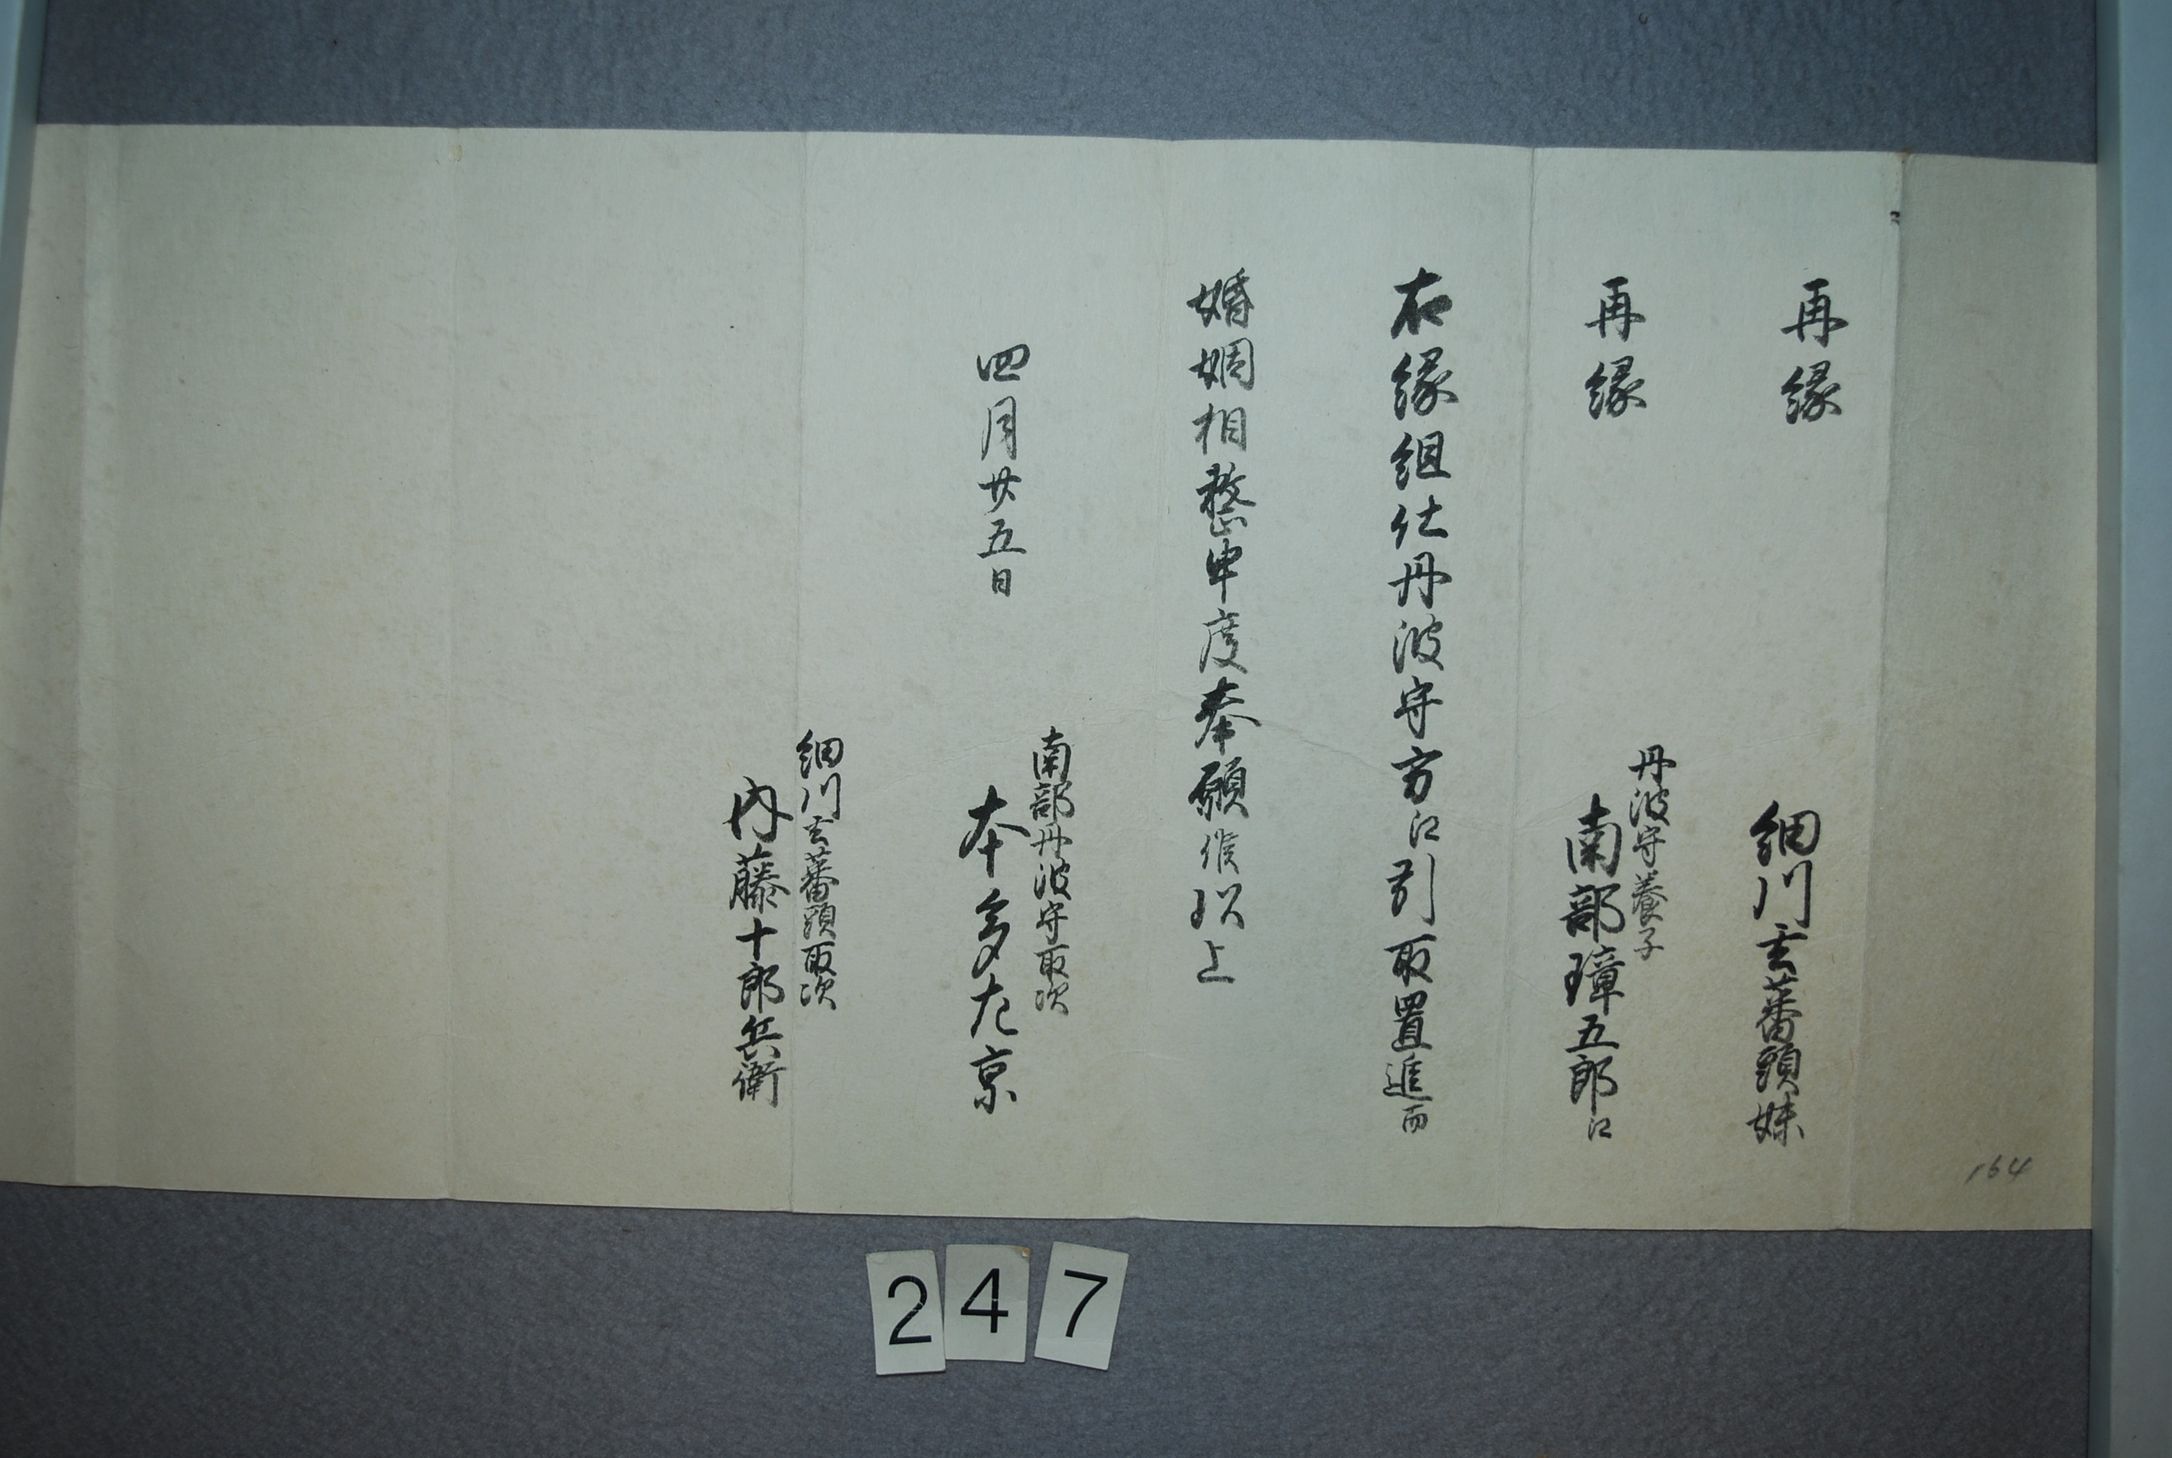 再縁 細川玄蕃頭妹
丹波守養子
再縁 南部璋五郎江
右縁組仕丹波守方江引取置追而
婚姻相整申度奉願候以上
四月廿五日
南部丹波守取次
本多左京
細川玄蕃頭取次
内藤十郎兵衛
164
247